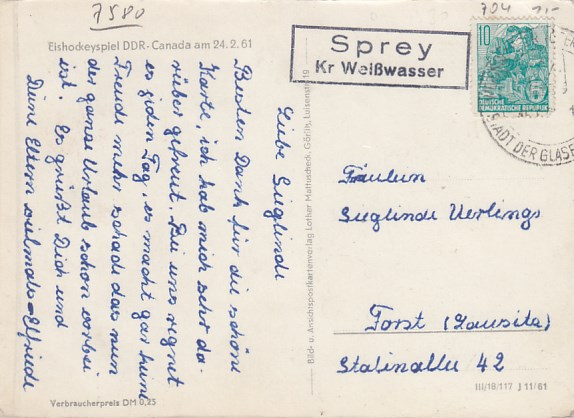 7580
704 1,-
Eishockeyspiel DDR-Canada am 24.2.61
Sprey
Kr Weißwasser
10
DEUTSCHE
DEMOKRATISCHE REPUBLIK
STADT DER GLAS
Liebe Sieglinde
Besten Dank für die schöne
Karte, ich hab mich sehr da-
rüber gefreut. Bei uns regnet
es jeden Tag es macht gar keine
Freude mehr schade das nun
der ganze Urlaub schon vorbei
ist. Es grüßt Dich und
Deine Eltern vielmals Elfriede
Bild- u. Ansichtspostkartenverlag Lothar Mattuscheck, Görlitz, Luisenstr. 19
Fräulein
Sieglinde Uerlings
Forst (Lausitz)
Stalinallee 42
Verbraucherpreis DM 0,25
III/18/117 J 11/61